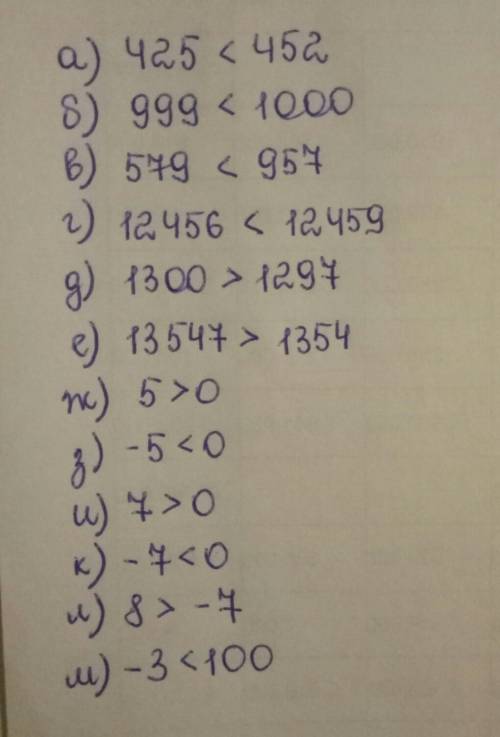 а) 425 < 452
б) 999 < 1000
в) 579 < 957
г) 12456 < 12459
д) 1300 > 1297
е) 13547 > 1354
ж) 5 > 0
з) -5 < 0
и) 7 > 0
к) -7 < 0
л) 8 > -7
м) -3 < 100